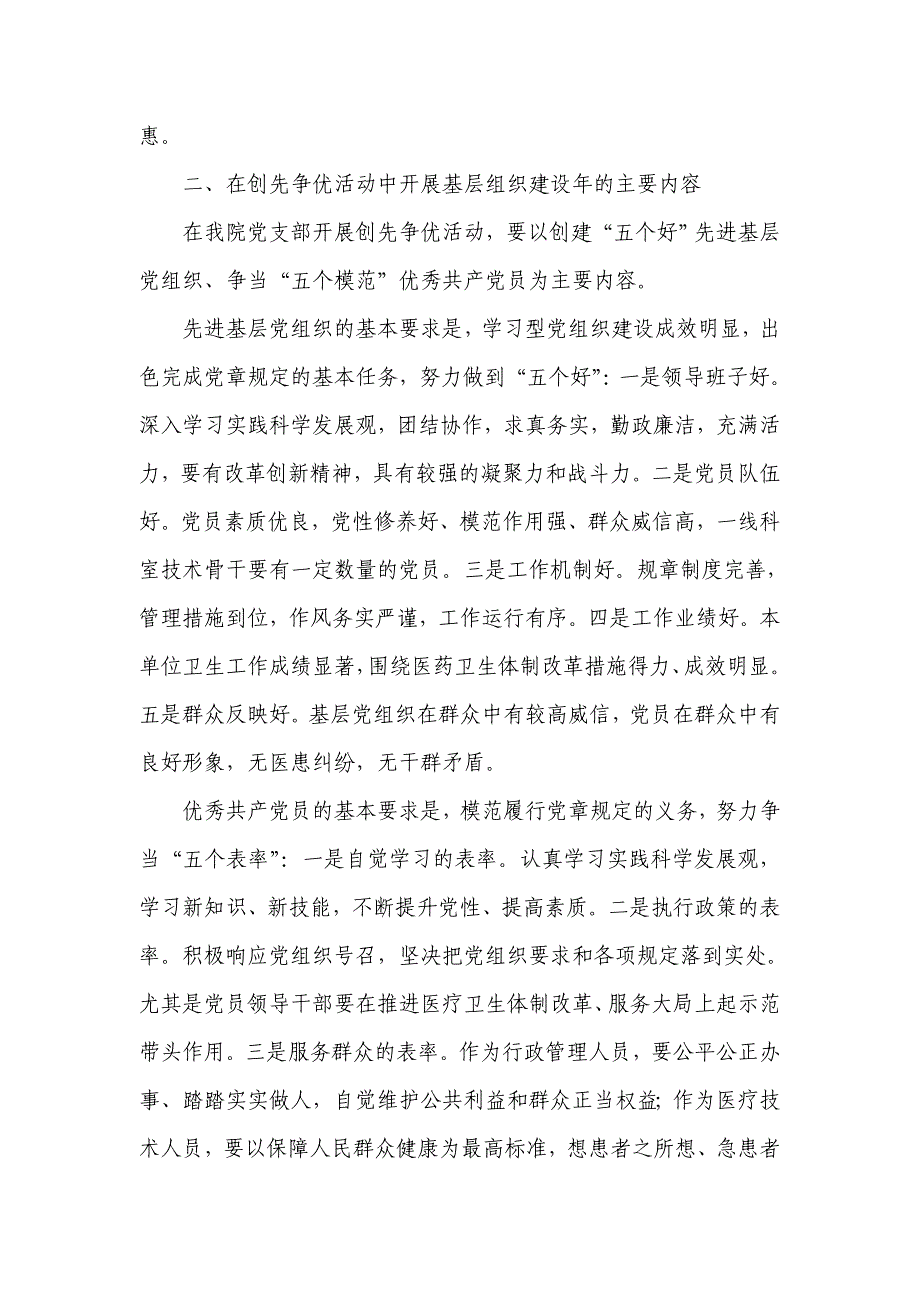 惠。
二、在创先争优活动中开展基层组织建设年的主要内容
在我院党支部开展创先争优活动，要以创建“五个好”先进基层
党组织、争当“五个模范”优秀共产党员为主要内容。
先进基层党组织的基本要求是，学习型党组织建设成效明显，出
色完成党章规定的基本任务，努力做到“五个好”：一是领导班子好。
深入学习实践科学发展观，团结协作，求真务实，勤政廉洁，充满活
力，要有改革创新精神，具有较强的凝聚力和战斗力。二是党员队伍
好。党员素质优良，党性修养好、模范作用强、群众威信高，一线科
室技术骨干要有一定数量的党员。三是工作机制好。规章制度完善，
管理措施到位，作风务实严谨，工作运行有序。四是工作业绩好。本
单位卫生工作成绩显著，围绕医药卫生体制改革措施得力、成效明显。
五是群众反映好。基层党组织在群众中有较高威信，党员在群众中有
良好形象，无医患纠纷，无干群矛盾。
优秀共产党员的基本要求是，模范履行党章规定的义务，努力争
当“五个表率”：一是自觉学习的表率。认真学习实践科学发展观，
学习新知识、新技能，不断提升党性、提高素质。二是执行政策的表
率。积极响应党组织号召，坚决把党组织要求和各项规定落到实处。
尤其是党员领导干部要在推进医疗卫生体制改革、服务大局上起示范
带头作用。三是服务群众的表率。作为行政管理人员，要公平公正办
事、踏踏实实做人，自觉维护公共利益和群众正当权益；作为医疗技
术人员，要以保障人民群众健康为最高标准，想患者之所想、急患者